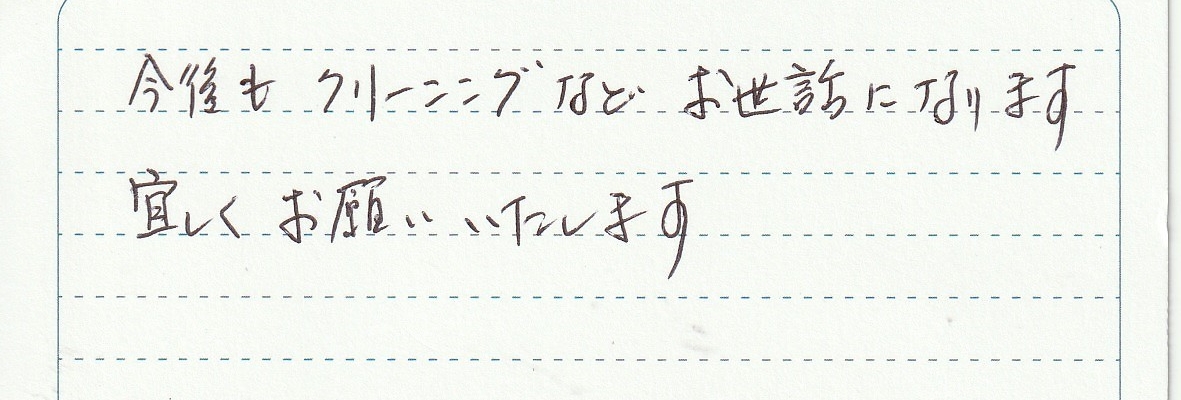 今後も クリーニングなど お世話になります
宜しくお願いいたします